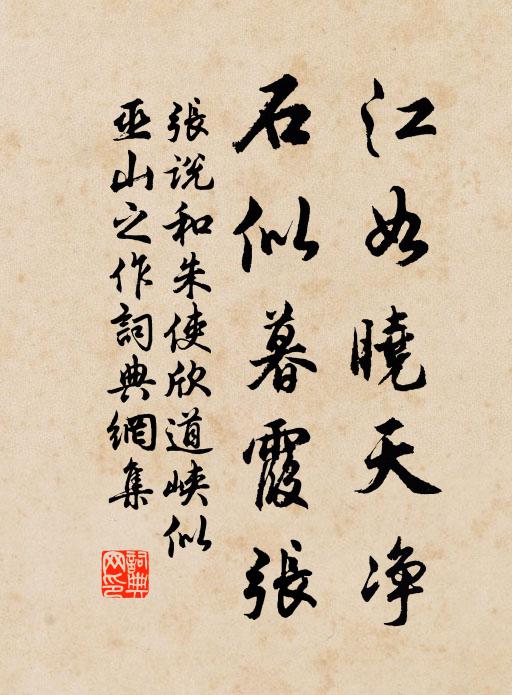 江如曉天净
石似暮霞張
張説和朱使欣道峽似
巫山之作詞典網集
詞典网印